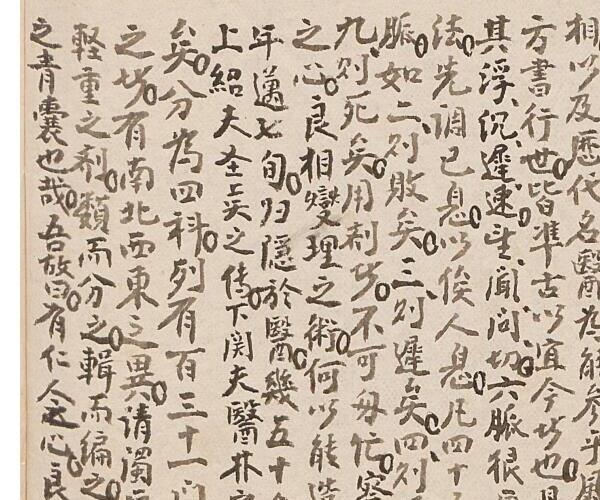 相以及歷代名醫爲能參乎
方書行世皆準古以宜今坊也
其浮沉遲速望聞問切六脈根
法先調己息以俟人息凡四十
脈如二則敗矣三則遲矣四則
九則死矣用剤坊不可毋忙察
之心良相變理之術何以能
年邁七旬归隱於醫幾五十
上紹夫圣矣之傳下関夫醫林
矣分為四科列有百三十一
之坊有南北西東之異清濁
軽重之剤類而分之輯而編之
之青囊也哉吾故曰有仁人之心良